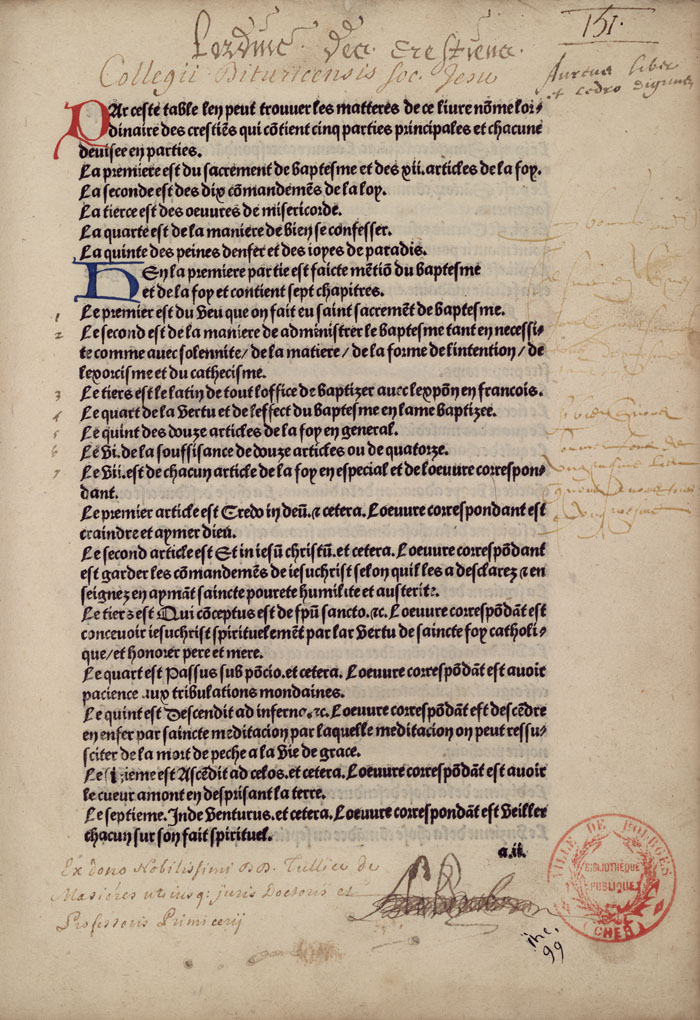 151.
Lordinere des crestiens.
Collegii Bituricensis Soc. Jesu
Aureus liber
et cedro dignus
PAr ceste table len peut trouuer les matieres de ce liure nõme lor-
dinaire des crestiẽs qui cõtient cinq parties principales et chacune
deuisee en parties.
La premiere est du sacrement de baptesme et des xii. articles de la foy.
La seconde est des dix cõmandemẽs de la loy.
La tierce est des oeuures de misericorde.
La quarte est de la maniere de bien se confesser.
La quinte des peines denfer et des ioyes de paradis.
EN la premiere partie est faicte mẽtiõ du baptesme
et de la foy et contient sept chapitres.
1 Le premier est du veu que on fait eu saint sacremẽt de baptesme.
2 Le second est de la maniere de administrer le baptesme tant en necessi-
te comme auec solennite/ de la matiere/ de la forme de lintention/ de
lexorcisme et du cathecisme.
3 Le tiers est le latin de tout loffice de baptizer auec lexpõn en francois.
4 Le quart de la vertu et de leffect du baptesme en lame baptizee.
5 Le quint des douze articles de la foy en general.
6 Le vi. de la souffisance de douze articles ou de quatorze.
7 Le vii. est de chacun article de la foy en especial et de loeuure correspon-
dant.
Le premier article est Credo in deũ. ⁊ cetera. Loeuure correspondant est
craindre et aymer dieu.
Le second article est Et in iesũ christũ. et cetera. Loeuure correspõdant
est garder les cõmandemẽs de iesuchrist selon quil les a desclarez ⁊ en
seignez en aymãt saincte pourete humilite et austerite.
Le tiers est Qui cõceptus est de spũ sancto. ⁊c. Loeuure correspõdãt est
conceuoir iesuchrist spirituelemẽt par lar vertu de saincte foy catholi-
que/ et honorer pere et mere.
Le quart est Passus sub põcio. et cetera. Loeuure correspõdãt est auoir
pacience aux tribulations mondaines.
Le quint est Descendit ad inferno. ⁊c. Loeuure correspõdãt est descẽdre
en enfer par saincte meditacion par laquelle meditacion on peut ressu-
sciter de la mort de peche a la vie de grace.
Le sixieme est Ascẽdit ad celos. et cetera. Loeuure correspõdãt est auoir
le cueur amont en desprisant la terre.
Le septieme. Inde venturus. et cetera. Loeuure correspondãt est veiller
chacun sur son fait spirituel.
a.ii.
Ex dono Nobilissimi DD. Tullier de
Masieres utriusq; juris Doctoris et
Professoris Primicerij
VILLE DE BOURGES
BIBLIOTHÈQUE
PUBLIQUE
(CHER)
inc.
99